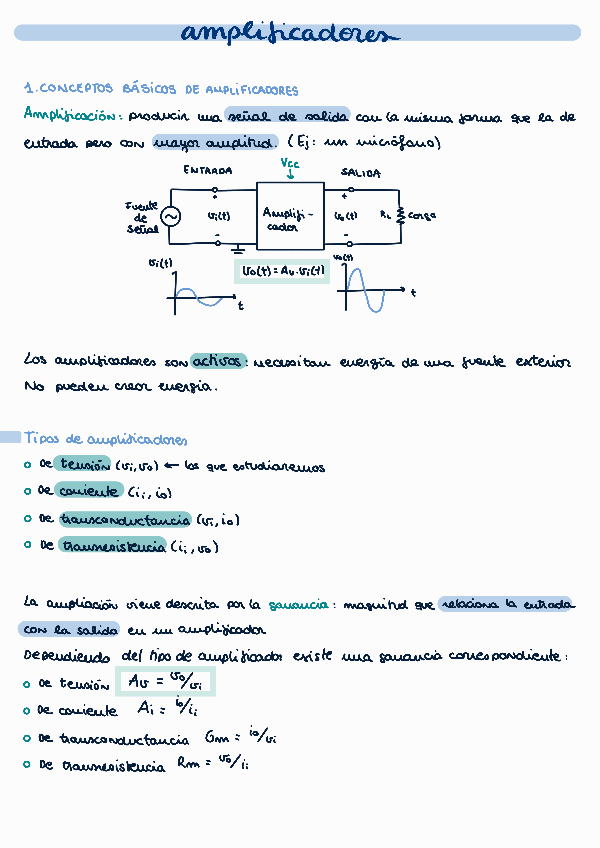 amplificadores
1. CONCEPTOS BÁSICOS DE AMPLIFICADORES
Amplificación: producir una señal de salida con la misma forma que la de
entrada pero con mayor amplitud. (Ej: un micrófono)
Vcc
ENTRADA
SALIDA
+
+
Fuente de señal
vi(t)
Amplifi-
cador
vo(t)
RL
carga
-
-
vi(t)
vo(t) = Av·vi(t)
vo(t)
t
t
Los amplificadores son activos: necesitan energía de una fuente exterior
No pueden crear energia.
Tipos de amplificadores
o De tensión (vi, vo) ← los que estudiaremos
o De corriente (ii, io)
o De transconductancia (vi, io)
o De transresistencia (ii, vo)
La ampliación viene descrita por la ganancia: magnitud que relaciona la entrada
con la salida en un amplificador
Dependiendo del tipo de amplificador existe una ganancia correspondiente:
o De tensión Av = vo/vi
o De corriente Ai = io/ii
o De transconductancia Gm = io/vi
o De transresistencia Rm = vo/ii